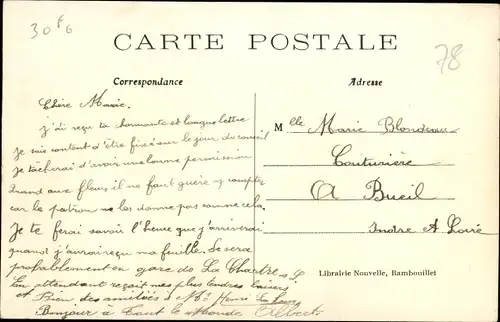 30 F 6
78
CARTE POSTALE
Correspondance
Adresse
Chère Marie.
j'ai reçu ta charmante et longue lettre
je suis content d'être fixé sur le jour du conseil
je tâcherai d'avoir une bonne permission
Quand aux fleurs il ne faut guère y compter
car le patron ne les donne pas comme cela.
Je te ferai savoir l'heure que j'arriverai
quand j'aurai reçu ma feuille. Se sera
probablement en gare de La Chartre s L
En attendant reçoit mes plus tendres baisers
et Bien des amitiés à Mr Henri
Bonjour à tout le monde Albert
Mlle Marie Blondeau
Couturière
A Bueil
Indre et Loire
Librairie Nouvelle, Rambouillet